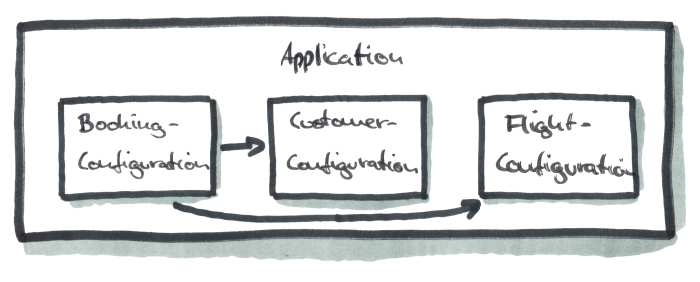 Application
Booking-
Configuration
Customer-
Configuration
Flight-
Configuration